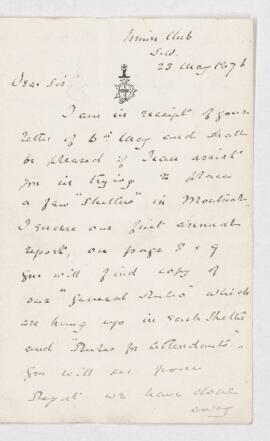 Union Club
S.W.
23 May 1876
Dear Sir
I am in receipt of your
letter of 6th May and shall
be pleased if I can assist
you in trying to place
a few "Shelters" in Montreal.
I enclose our first annual
report, on page 8 & 9
you will find copy of
our "General Rules" which
are hung up in each Shelter
and "Rules for Attendants".
You will see from
Report we have done
away